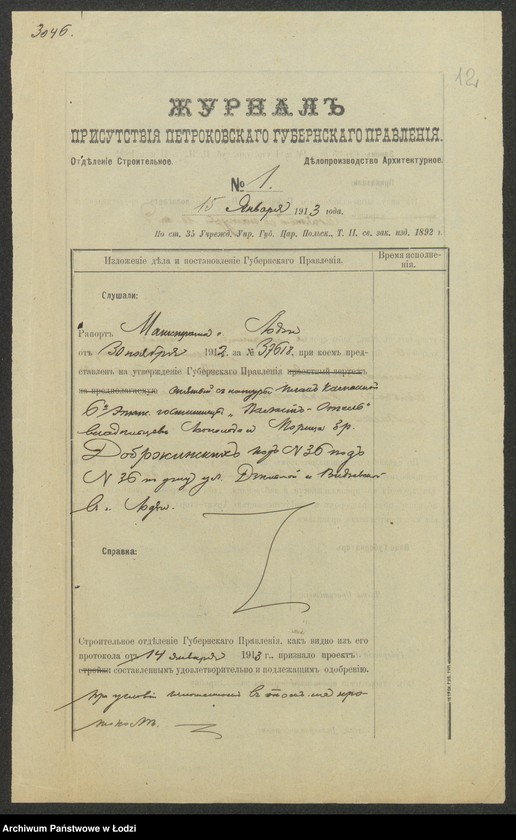 3046.
12
ЖУРНАЛЪ
ПРИСУТСТВІЯ ПЕТРОКОВСКАГО ГУБЕРНСКАГО ПРАВЛЕНІЯ.
Отдѣленіе Строительное. Дѣлопроизводство Архитектурное.
№ 1.
15 Января 1913 года.
По ст. 35 Учрежд. Упр. Губ. Цар. Польск., Т. II, св. зак. изд. 1892 г.
Изложеніе дѣла и постановленіе Губернскаго Правленія. Время исполненія.
Слушали:
Рапортъ Магистрата г. Лодзи
отъ 30 ноября 1912 за № 37618, при коемъ пред-
ставленъ на утвержденіе Губернскаго Правленія проектный чертежъ
на предполагаемую снятый съ натуры планъ
6ти этажн. гостинницы "Паластъ-Отель"
Леопольда и Морица бр.
Добржинскихъ подъ N 36 подъ
N 36 по углу ул. Дзикой и Видзевской
въ г. Лодзи.
Справка:
Строительное отдѣленіе Губернскаго Правленія, какъ видно изъ его
протокола отъ 14 января 1913 г., призвало проектъ
стройки составленнымъ удовлетворительно и подлежащимъ одобренію.
при условіи въ